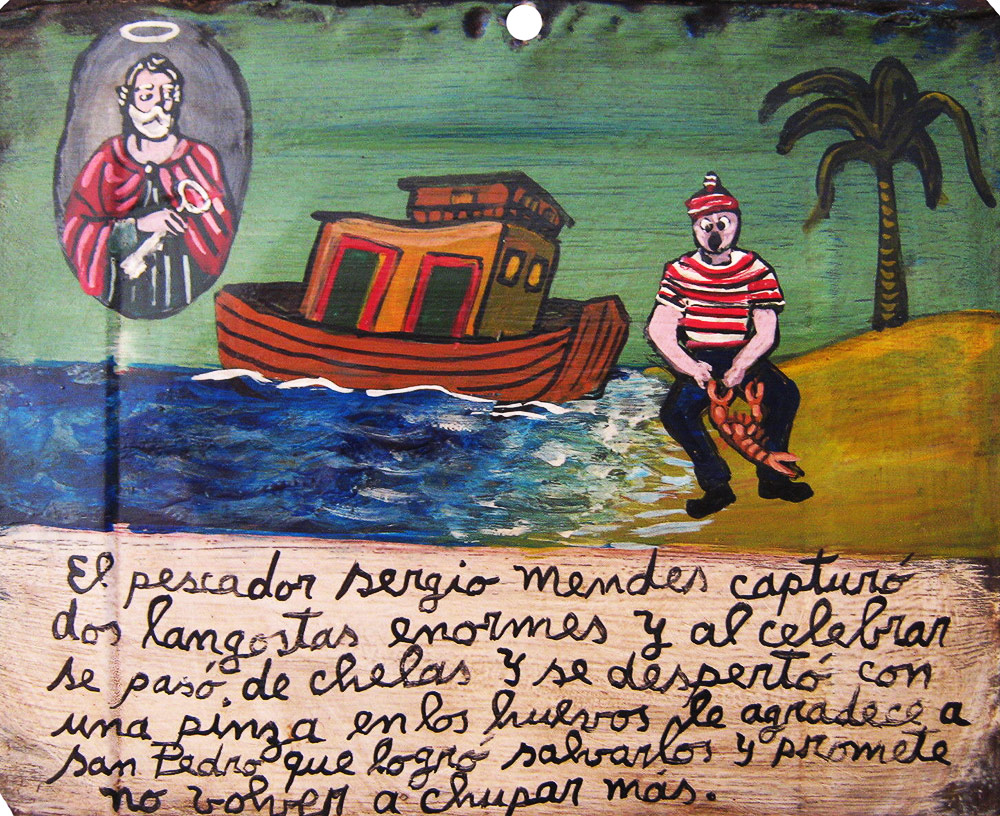 El pescador sergio mendes capturó
dos langostas enormes y al celebrar
se pasó de chelas y se despertó con
una pinza en los huevos le agradece a
san Pedro que logró salvarlos y promete
no volver a chupar más.